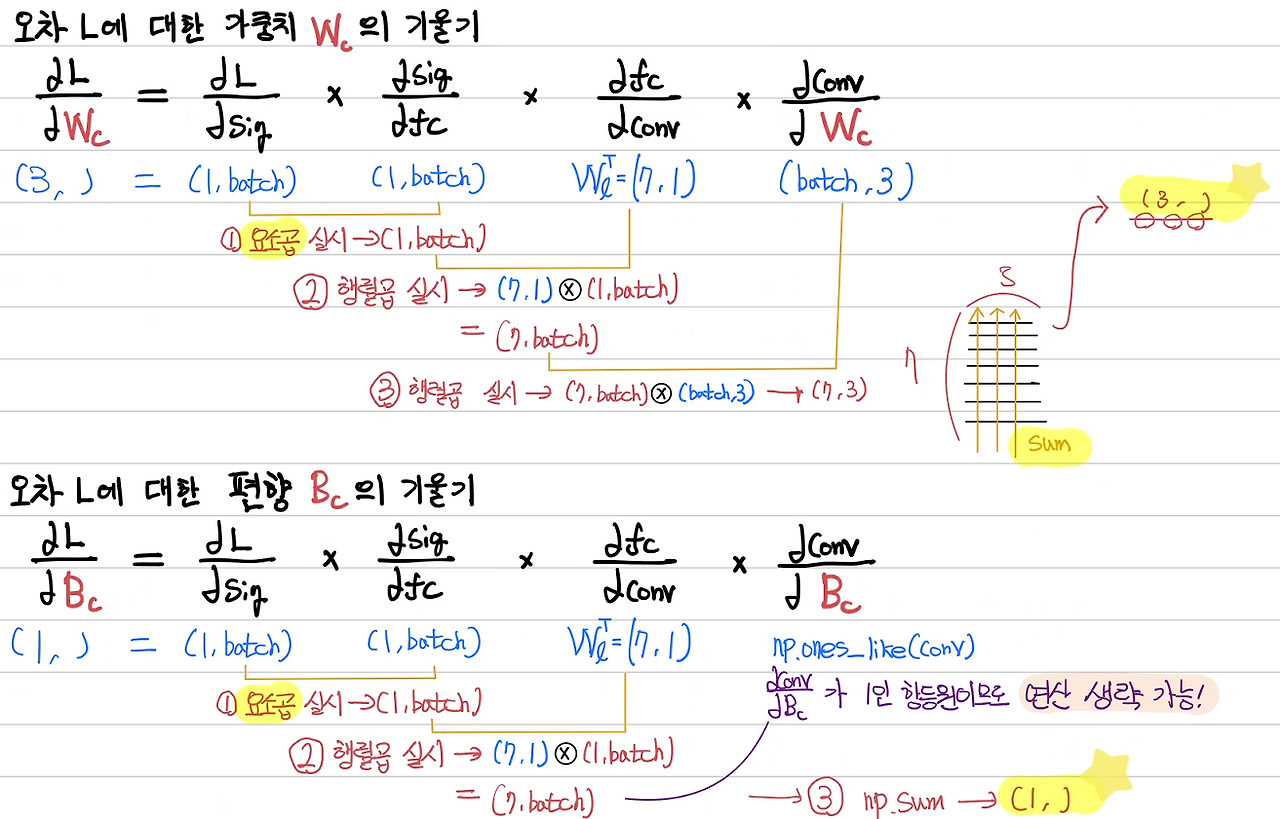 오차 L에 대한 가중치 Wc의 기울기
∂L/∂Wc = ∂L/∂Sig × ∂Sig/∂fc × ∂fc/∂Conv × ∂Conv/∂Wc
(3, ) = (1,batch) (1,batch) Wℓᵀ=(7,1) (batch,3)
(3, )
① 요소곱 실시→(1,batch)
② 행렬곱 실시 → (7,1)⊗(1,batch)
= (7,batch)
③ 행렬곱 실시 → (7,batch)⊗(batch,3) → (7,3)
3
7
Sum
오차 L에 대한 편향 Bc의 기울기
∂L/∂Bc = ∂L/∂Sig × ∂Sig/∂fc × ∂fc/∂Conv × ∂Conv/∂Bc
(1, ) = (1,batch) (1,batch) Wℓᵀ=(7,1) np.ones_like(conv)
∂Conv/∂Bc 가 1인 항등원이므로 연산 생략 가능!
① 요소곱 실시→(1,batch)
② 행렬곱 실시 → (7,1)⊗(1,batch)
= (7,batch) → ③ np.sum → (1, )